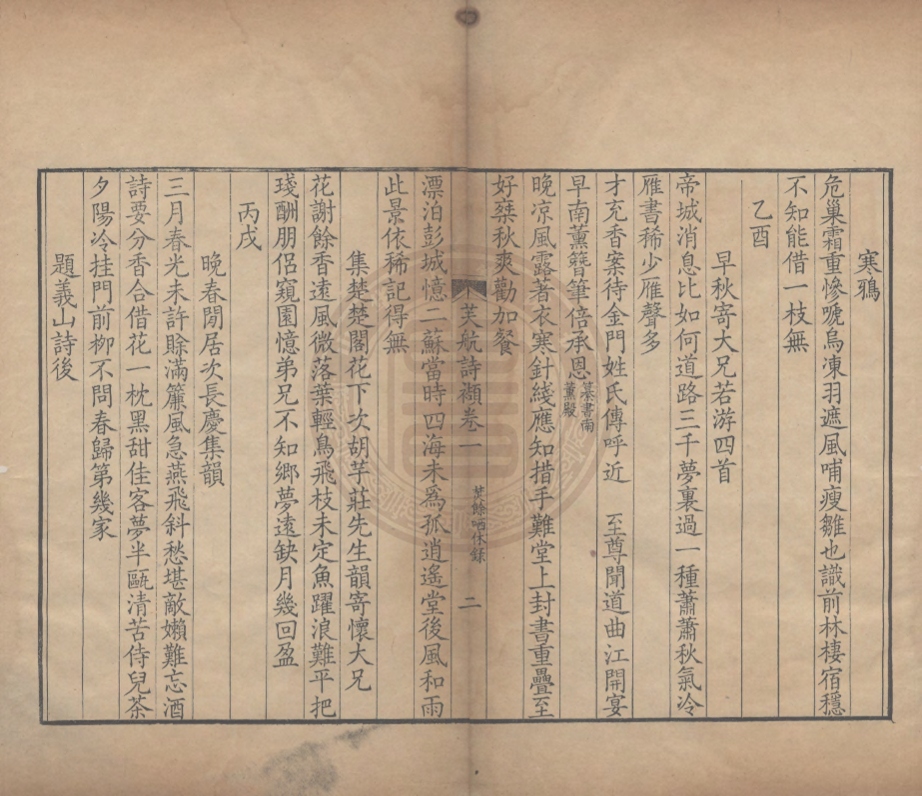 寒鴉
危巢霜重慘嗁烏凍羽遮風哺瘦雛也識前林棲宿穩
不知能借一枝無
乙酉
早秋寄大兄若游四首
帝城消息比如何道路三千夢裏過一種蕭蕭秋氣冷
雁書稀少雁聲多
才充香案待金門姓氏傳呼近　至尊聞道曲江開宴
早南薰簪筆倍承恩纂書南薰殿
晚凉風露著衣寒針綫應知措手難堂上封書重疊至
好乘秋爽勸加餐
芙航詩襭卷一
莫餘哂休錄
二
漂泊彭城憶二蘇當時四海未爲孤逍遙堂後風和雨
此景依稀記得無
集楚楚閣花下次胡芋莊先生韻寄懷大兄
花謝餘香遠風微落葉輕鳥飛枝未定魚躍浪難平把
琖酬朋侶窺園憶弟兄不知鄉夢遠缺月幾回盈
丙戌
晚春閒居次長慶集韻
三月春光未許賒滿簾風急燕飛斜愁堪敵嬾難忘酒
詩要分香合借花一枕黑甜佳客夢半甌清苦侍兒茶
夕陽冷挂門前柳不問春歸第幾家
題義山詩後